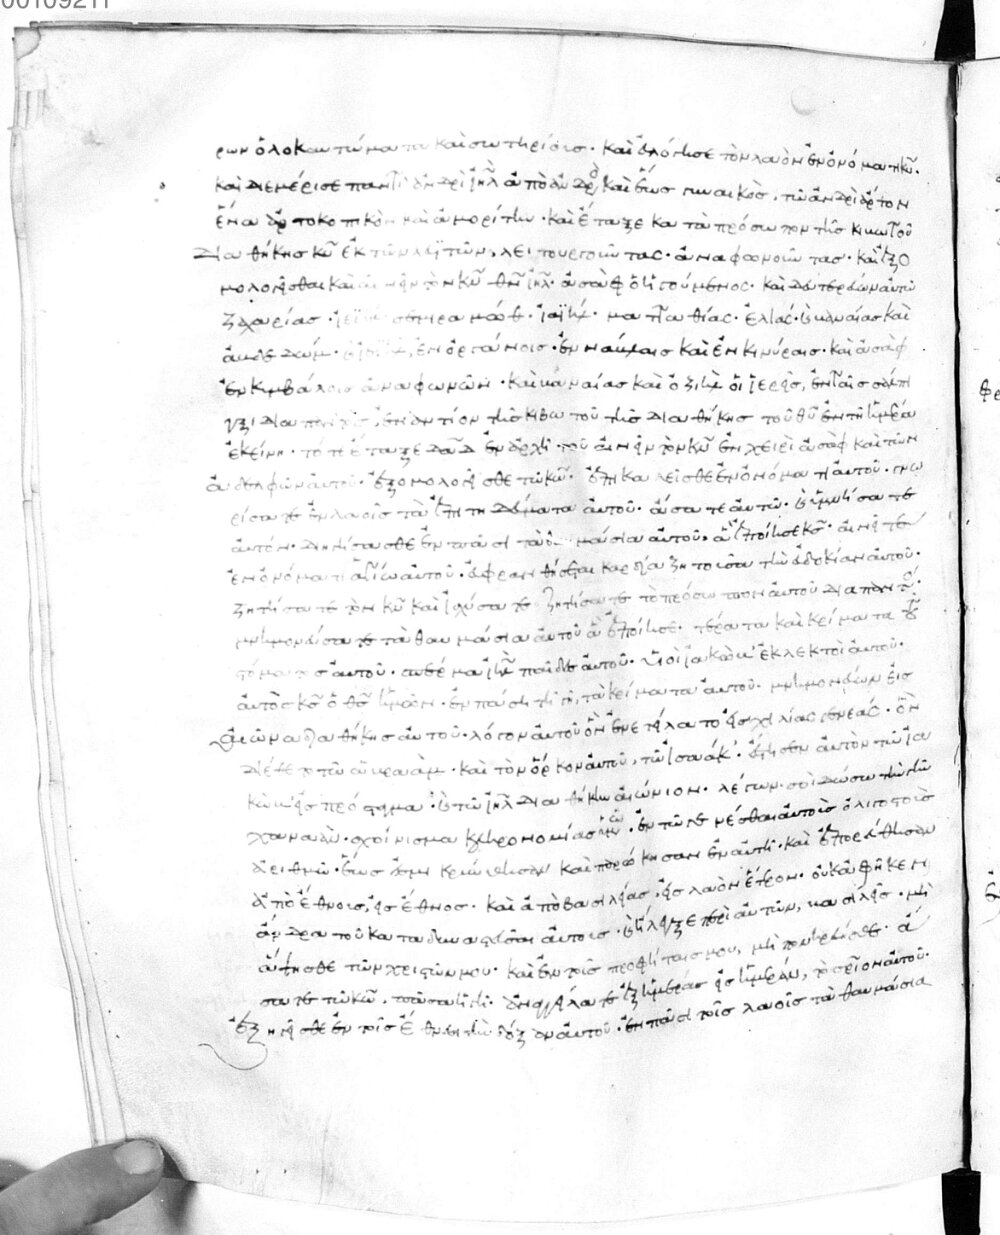 00109211
ρων ὁλοκαυτώματα καὶ σωτηρίους · καὶ εὐλόγησε τὸν λαὸν ἐν ὀνόματι κυ̅ ·
καὶ διεμέρισε παντὶ ἀνδρὶ ἰηλ̅ ἀπὸ ἀνδρὸς καὶ ἕως γυναικὸς, τῶ ἀνδρὶ ἄρτον
ἕνα ἀρτοκοπικὸν καὶ ἀμορίτην · καὶ ἔταξε κατὰ πρόσωπον τῆς κιβωτοῦ
διαθήκης κυ̅ ἐκ τῶν λευϊτῶν, λειτουργοῦντας · ἀναφωνοῦντας · καὶ ἐξο
μολογεῖσθαι καὶ αἰνεῖν τὸν κν̅ θν̅ ἰηλ̅ · ἀσὰφ ὁ ἡγούμενος · καὶ δευτερεύων αὐτῶ
ζαχαρίας · ἰεϊὴλ · σεμιραμώθ · ἰαϊήλ · ματταθίας · ἐλιάς · καὶ
ἐν ὀργάνοις · ἐν νάβλαις καὶ ἐν κινύραις · καὶ ἀσὰφ
ἐν κυμβάλοις ἀναφωνῶν · καὶ βαναίας καὶ ὀζιὴλ οἱ ἱερεῖς, ἐν ταῖς σάλπι
γξι διαπαντὸς, ἐναντίον τῆς κιβωτοῦ τῆς διαθήκης τοῦ θυ̅ ἐν τῇ ἡμέρα
ἐκείνη · τότε ἔταξε δαδ̅ ἐν ἀρχῇ · τοῦ αἰνεῖν τὸν κν̅ ἐν χειρὶ ἀσὰφ καὶ τῶν
ἀδελφῶν αὐτοῦ · ἐξομολογεῖσθε τῶ κω̅ · ἐπικαλεῖσθε ἐν ὀνόματι αὐτοῦ · γνω
ρίσατε ἐν λαοῖς τὰ ἐπιτηδεύματα αὐτοῦ · ἄσατε αὐτῶ · ὑμνήσατε
αὐτόν · διηγήσασθε ἐν πᾶσι τὰ θαυμάσια αὐτοῦ, ἃ ἐποίησε κς̅ · αἰνεῖτε
ἐν ὀνόματι ἁγίω αὐτοῦ · εὐφρανθήσεται καρδία ζητοῦσα τὴν εὐδοκίαν αὐτοῦ ·
ζητήσατε τὸν κν̅ καὶ ἰσχύσατε · ζητήσατε τὸ πρόσωπον αὐτοῦ διαπαντός ·
μνημονεύσατε τὰ θαυμάσια αὐτοῦ ἃ ἐποίησε · τέρατα καὶ κρίματα τοῦ
στόματος αὐτοῦ · σπέρμα ἰηλ̅ παῖδες αὐτοῦ · υἱοὶ ἰακὼβ ἐκλεκτοὶ αὐτοῦ ·
αὐτὸς κς̅ ὁ θς̅ ἡμῶν · ἐν πάσῃ τῇ γῇ, τὰ κρίματα αὐτοῦ · μνημονεύων εἰς
αἰῶνα διαθήκης αὐτοῦ · λόγον αὐτοῦ ὃν ἐνετείλατο εἰς χιλίας γενεάς · ὃν
διέθετο τῶ ἀβραὰμ · καὶ τὸν ὅρκον αὐτοῦ, τῶ ἰσαάκ · ἔστησεν αὐτὸν τῶ ἰα
κὼβ εἰς πρόσταγμα · τῶ ἰηλ̅ διαθήκην αἰώνιον · λέγων · σοὶ δώσω τὴν γῆν
χαναὰν · σχοίνισμα κληρονομίας ὑμῶν · ἐν τῶ γενέσθαι αὐτοὺς ὀλιγοστοὺς
ἀριθμῶ · καὶ παρώκησαν ἐν αὐτῇ · καὶ ἐπορεύθησαν
ἀπὸ ἔθνους, εἰς ἔθνος · καὶ ἀπὸ βασιλείας, εἰς λαὸν ἕτερον · οὐκ ἀφῆκεν
ἄνδρα τοῦ καταδυναστεῦσαι αὐτοὺς · ἤλεγξε περὶ αὐτῶν, βασιλεῖς · μὴ
ἅψησθε τῶν χριστῶν μου · καὶ ἐν τοῖς προφήταις μου, μὴ πονηρεύεσθε · ἄ
σατε τῶ κω̅, πᾶσα ἡ γῆ · ἀναγγείλατε ἐξ ἡμέρας εἰς ἡμέραν, τὸ σριον αὐτοῦ ·
ἐξηγεῖσθε ἐν τοῖς ἔθνεσι τὴν δόξαν αὐτοῦ · ἐν πᾶσι τοῖς λαοῖς τὰ θαυμάσια